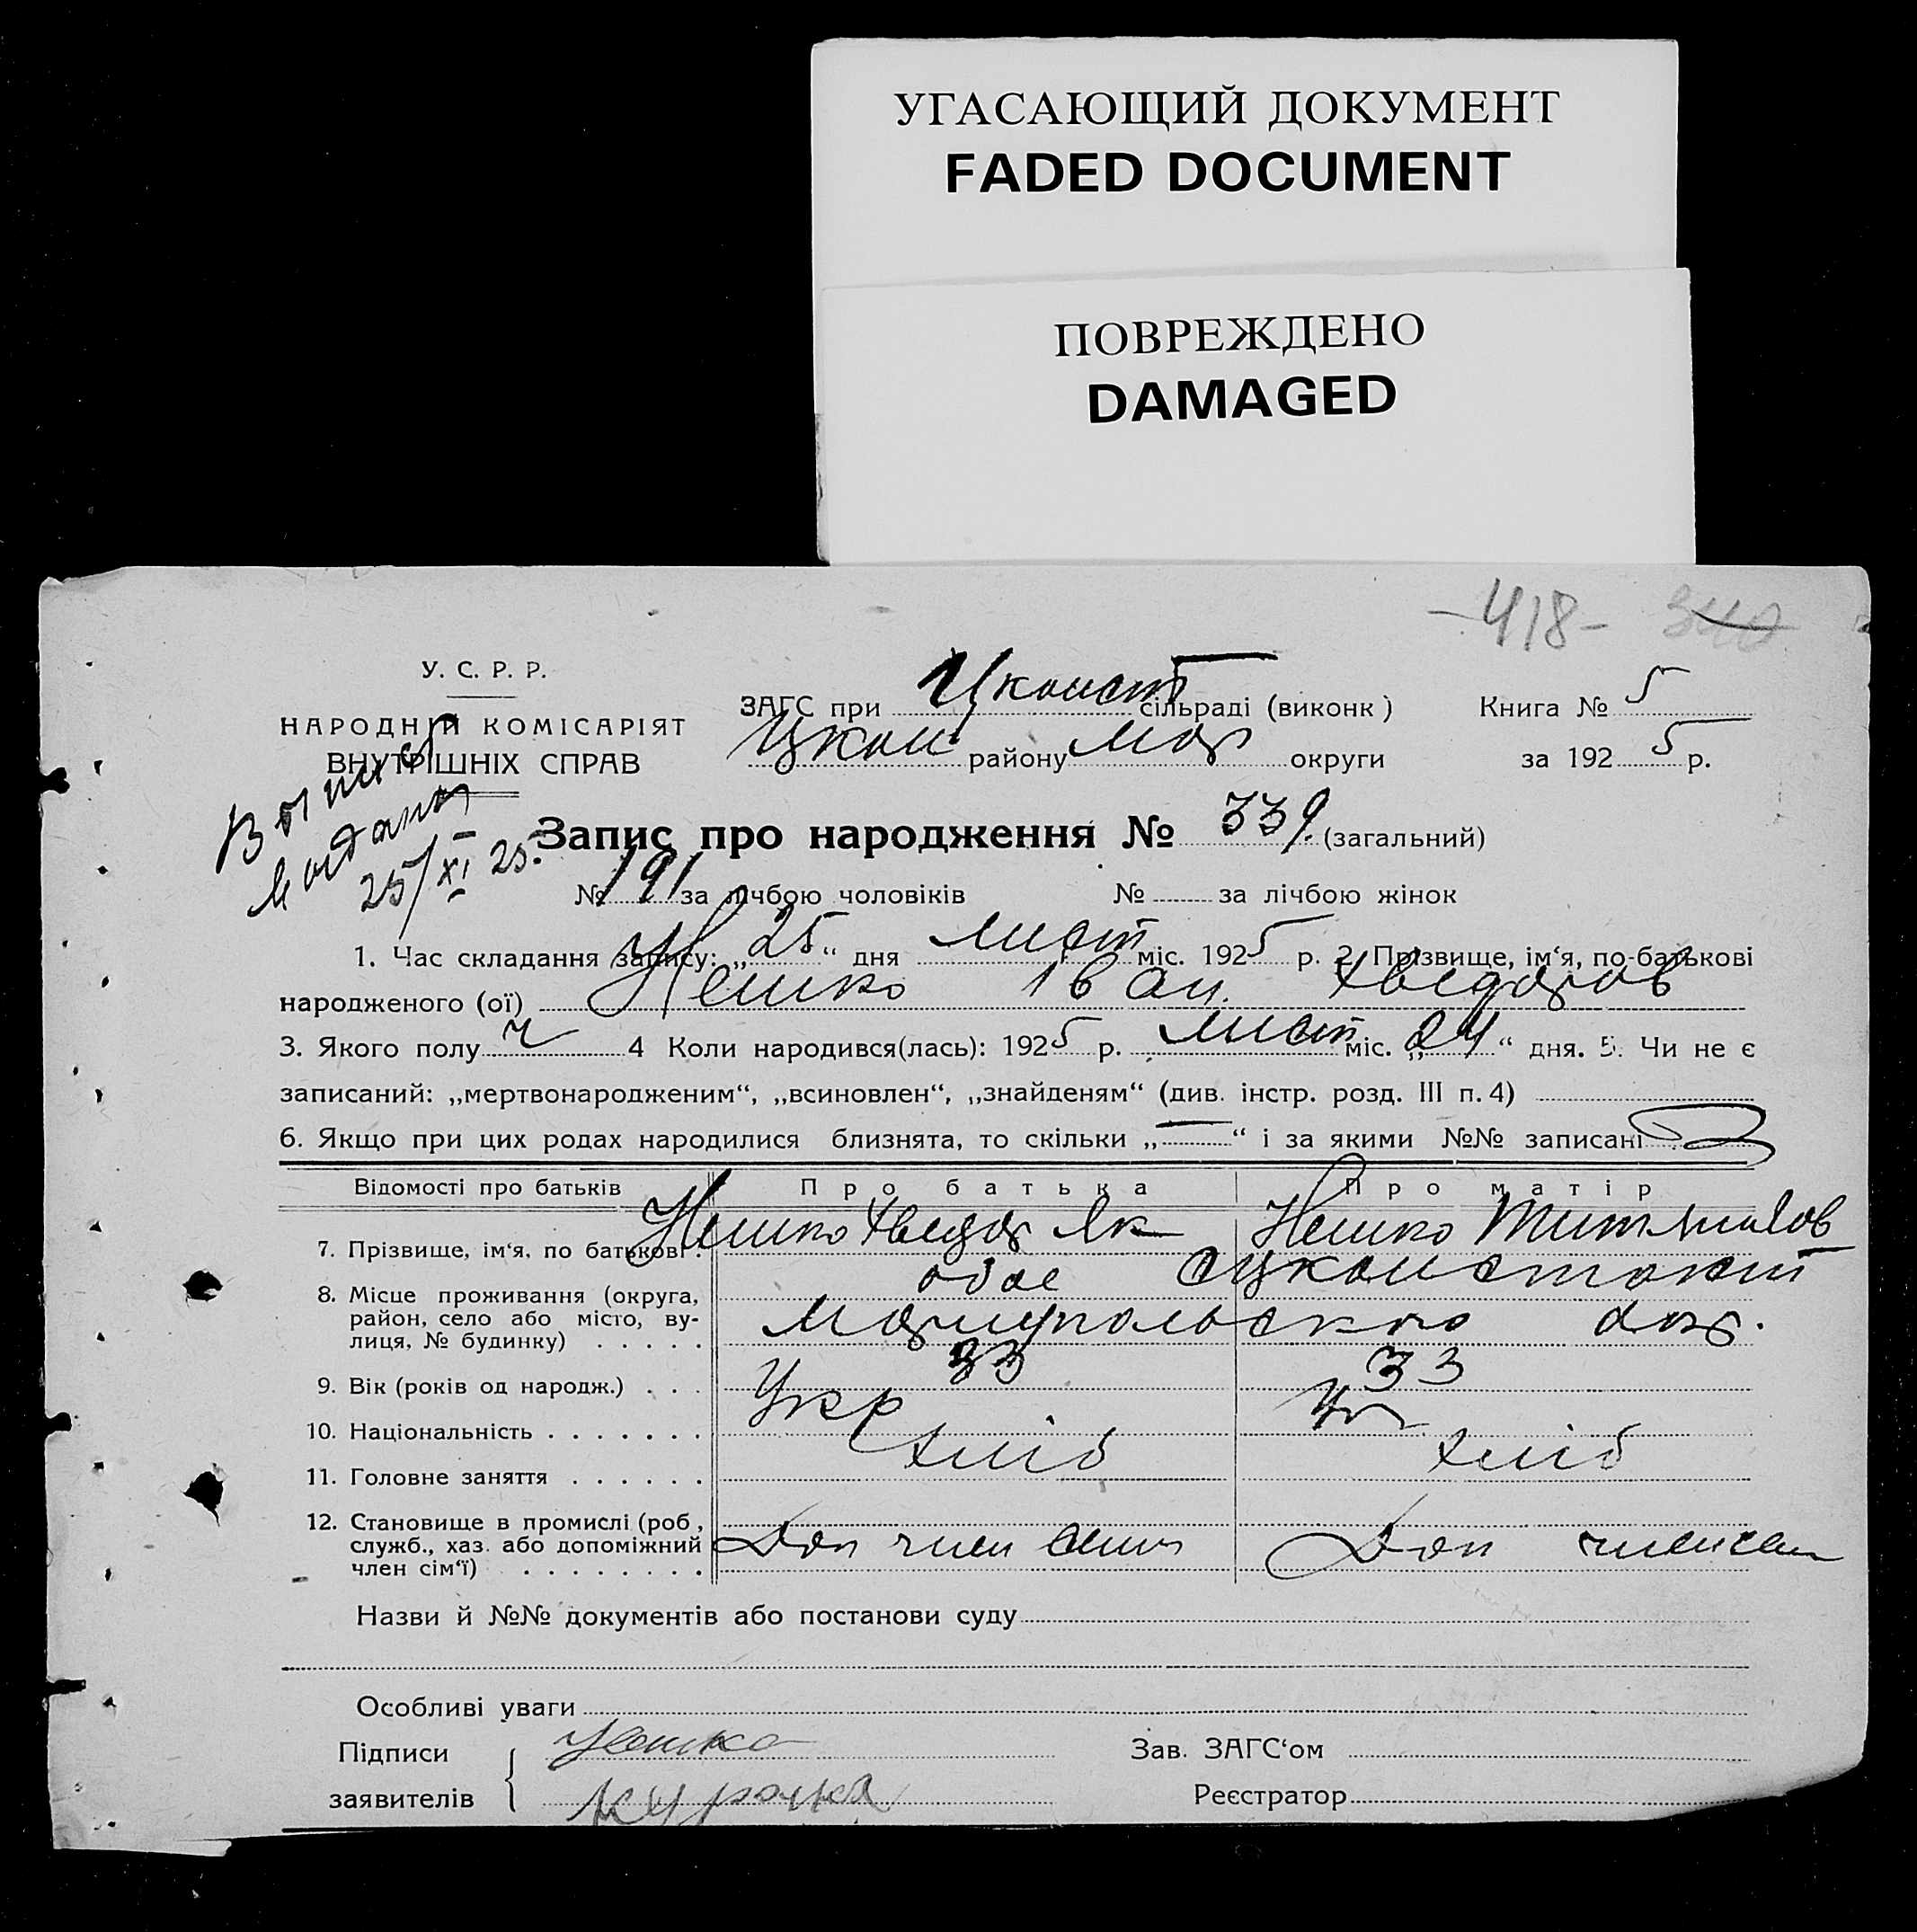 УГАСАЮЩИЙ ДОКУМЕНТ
FADED DOCUMENT
ПОВРЕЖДЕНО
DAMAGED
-418- 340
У. С. Р. Р.
НАРОДНІЙ КОМІСАРІЯТ
ВНУТРІШНІХ СПРАВ
ЗАГС при Цконст сільраді (виконк) Книга № 5
Цкон району Мар округи за 1925 р.
25/XI 25
Запис про народження № 339 (загальний)
№ 191 за лічбою чоловіків № за лічбою жінок
1. Час складання запису: „25“ дня лист міс. 1925 р. 2. Прізвище, ім‘я, по-батькові
народженого (ої) Нешко Іван Хведоров
3. Якого полу ч 4 Коли народився(лась): 1925 р. лист міс. „24“ дня. 5. Чи не є
записаний: „мертвонародженим“, „всиновлен“, „знайденям“ (див. інстр. розд. III п. 4)
6. Якщо при цих родах народилися близнята, то скільки „—“ і за якими №№ записані
Відомості про батьків Про батька Про матір
7. Прізвище, ім‘я, по батькові. Нешко Хведор Як Нешко
8. Місце проживання (округа, район, село або місто, вулиця, № будинку) обое
Маріупольского
9. Вік (років од народж.) 33 33
10. Національність Укр Ук
11. Головне заняття хліб хліб
12. Становище в промислі (роб., служб., хаз. або допоміжний член сім‘ї) Доп член семи Доп член сем
Назви й №№ документів або постанови суду
Особливі уваги
Підписи Нешко Зав. ЗАГС‘ом
заявителів Курочка Реєстратор